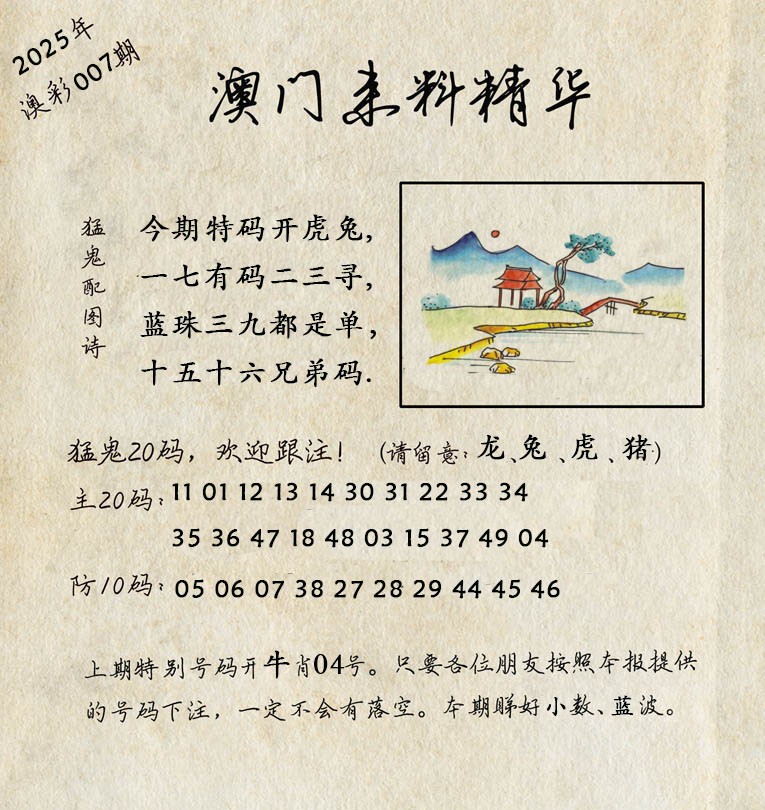 2025年
澳彩007期
澳门来料精华
猛鬼配图诗
今期特码开虎兔,
一七有码二三寻,
蓝珠三九都是单,
十五十六兄弟码.
猛鬼20码，欢迎跟注！（请留意：龙、兔、虎、猪）
主20码：11 01 12 13 14 30 31 22 33 34
35 36 47 18 48 03 15 37 49 04
防10码：05 06 07 38 27 28 29 44 45 46
上期特别号码开牛肖04号。只要各位朋友按照本报提供
的号码下注，一定不会有落空。本期睇好小数、蓝波。